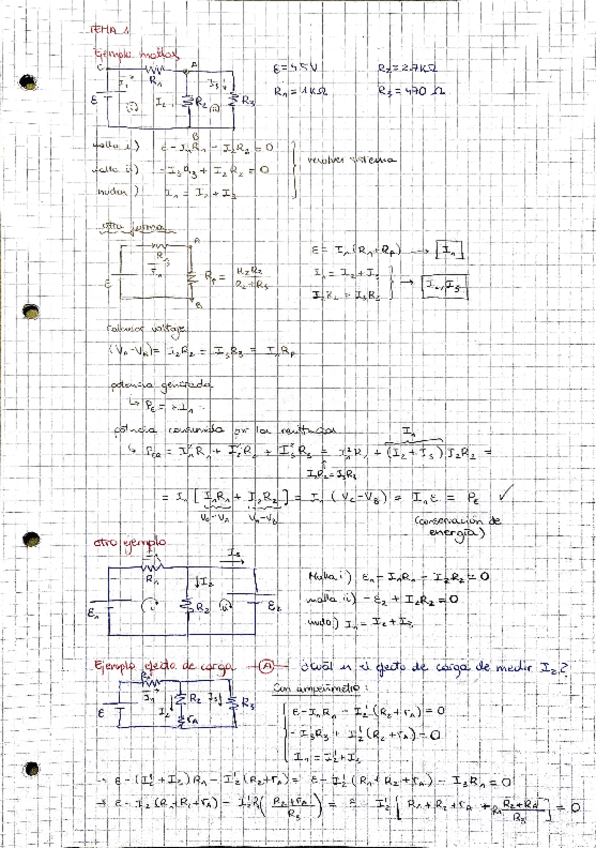 TEMA 1
Ejemplo mallas
C A
R₁ I₁ I₂ I₃ R₂ R₃ ε i) ii)
B
ε = 4.5V R₂ = 2.7KΩ
R₁ = 1KΩ R₃ = 470 Ω
malla i) ε - I₁R₁ - I₂R₂ = 0
malla ii) -I₃R₃ + I₂R₂ = 0
nudos) I₁ = I₂ + I₃
resolver sistema
otra forma
A
R₁ I₁ ε
B
Rp = R₃R₂ / R₂+R₃
ε = I₁(R₁+Rp) → I₁
I₁ = I₂ + I₃
I₂R₂ = I₃R₃ → I₂, I₃
Calcular voltaje
(VA-VB) = I₂R₂ = I₃R₃ = I₁Rp
potencia generada
↳ Pε = ε I₁
potencia consumida por las resistencias
I₁
= I₁²R₁ + I₂²R₂ + I₃²R₃ = I₁²R₁ + (I₂+I₃) I₂R₂ =
I₂R₂=I₃R₃
= I₁ [I₁R₁ + I₂R₂] = I₁ (VC-VB) = I₁ε = Pε ✓
VC-VA VA-VB
(conservación de
energía)
otro ejemplo
R₁ I₃ I₂ R₂ ε₁ ε₂ i) ii)
Malla i) ε₁ - I₁R₁ - I₂R₂ = 0
malla ii) -ε₂ + I₂R₂ = 0
nudo) I₁ = I₂ + I₃
Ejemplo efecto de carga -(A)- ¿Cuál es el efecto de carga de medir I₂?
R₁ I₁ R₂ I₂ rA I₃ R₃ ε
Con amperímetro:
ε - I₁R₁ - I₂'(R₂+rA) = 0
-I₃R₃ + I₂'(R₂+rA) = 0
I₁ = I₂' + I₃
→ ε - (I₂'+I₃)R₁ - I₂'(R₂+rA) = ε - I₂'(R₁+R₂+rA) - I₃R₁ = 0
→ ε - I₂'(R₁+R₂+rA) - I₂'R₁(R₂+rA / R₃) = ε - I₂' [R₁+R₂+rA + R₁ R₂+RA / R₃] = 0